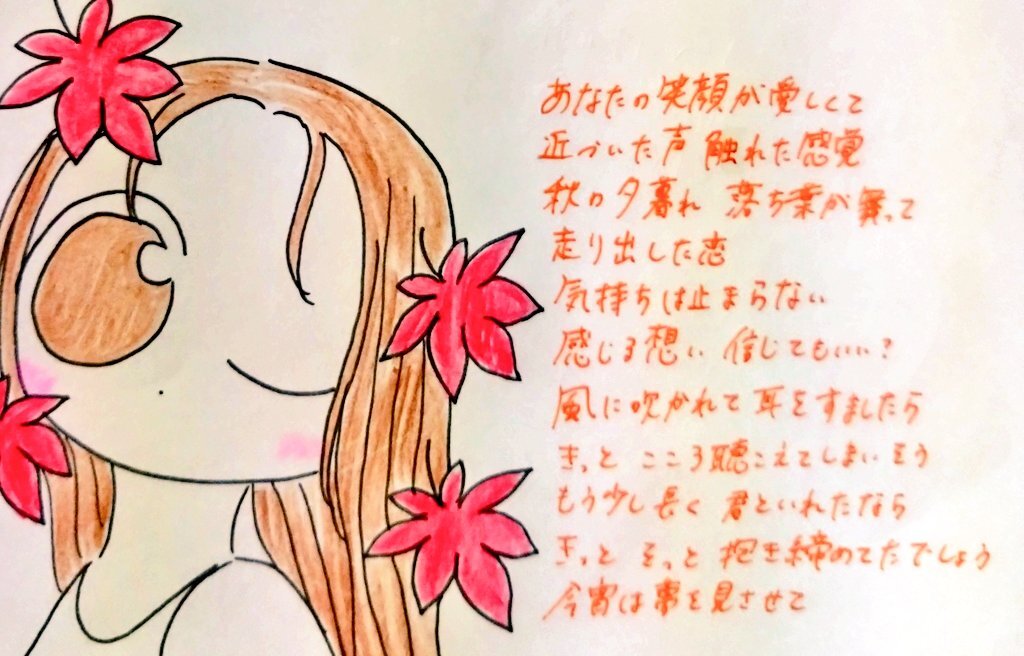 あなたの笑顔が愛しくて
近づいた声 触れた感覚
秋の夕暮れ 落ち葉が舞って
走り出した恋
気持ちは止まらない
感じる想い 信じてもいい?
風に吹かれて耳をすましたら
きっと こころ聴こえてしまいそう
もう少し長く 君といれたなら
きっと そっと 抱き締めてたでしょう
今宵は夢を見させて